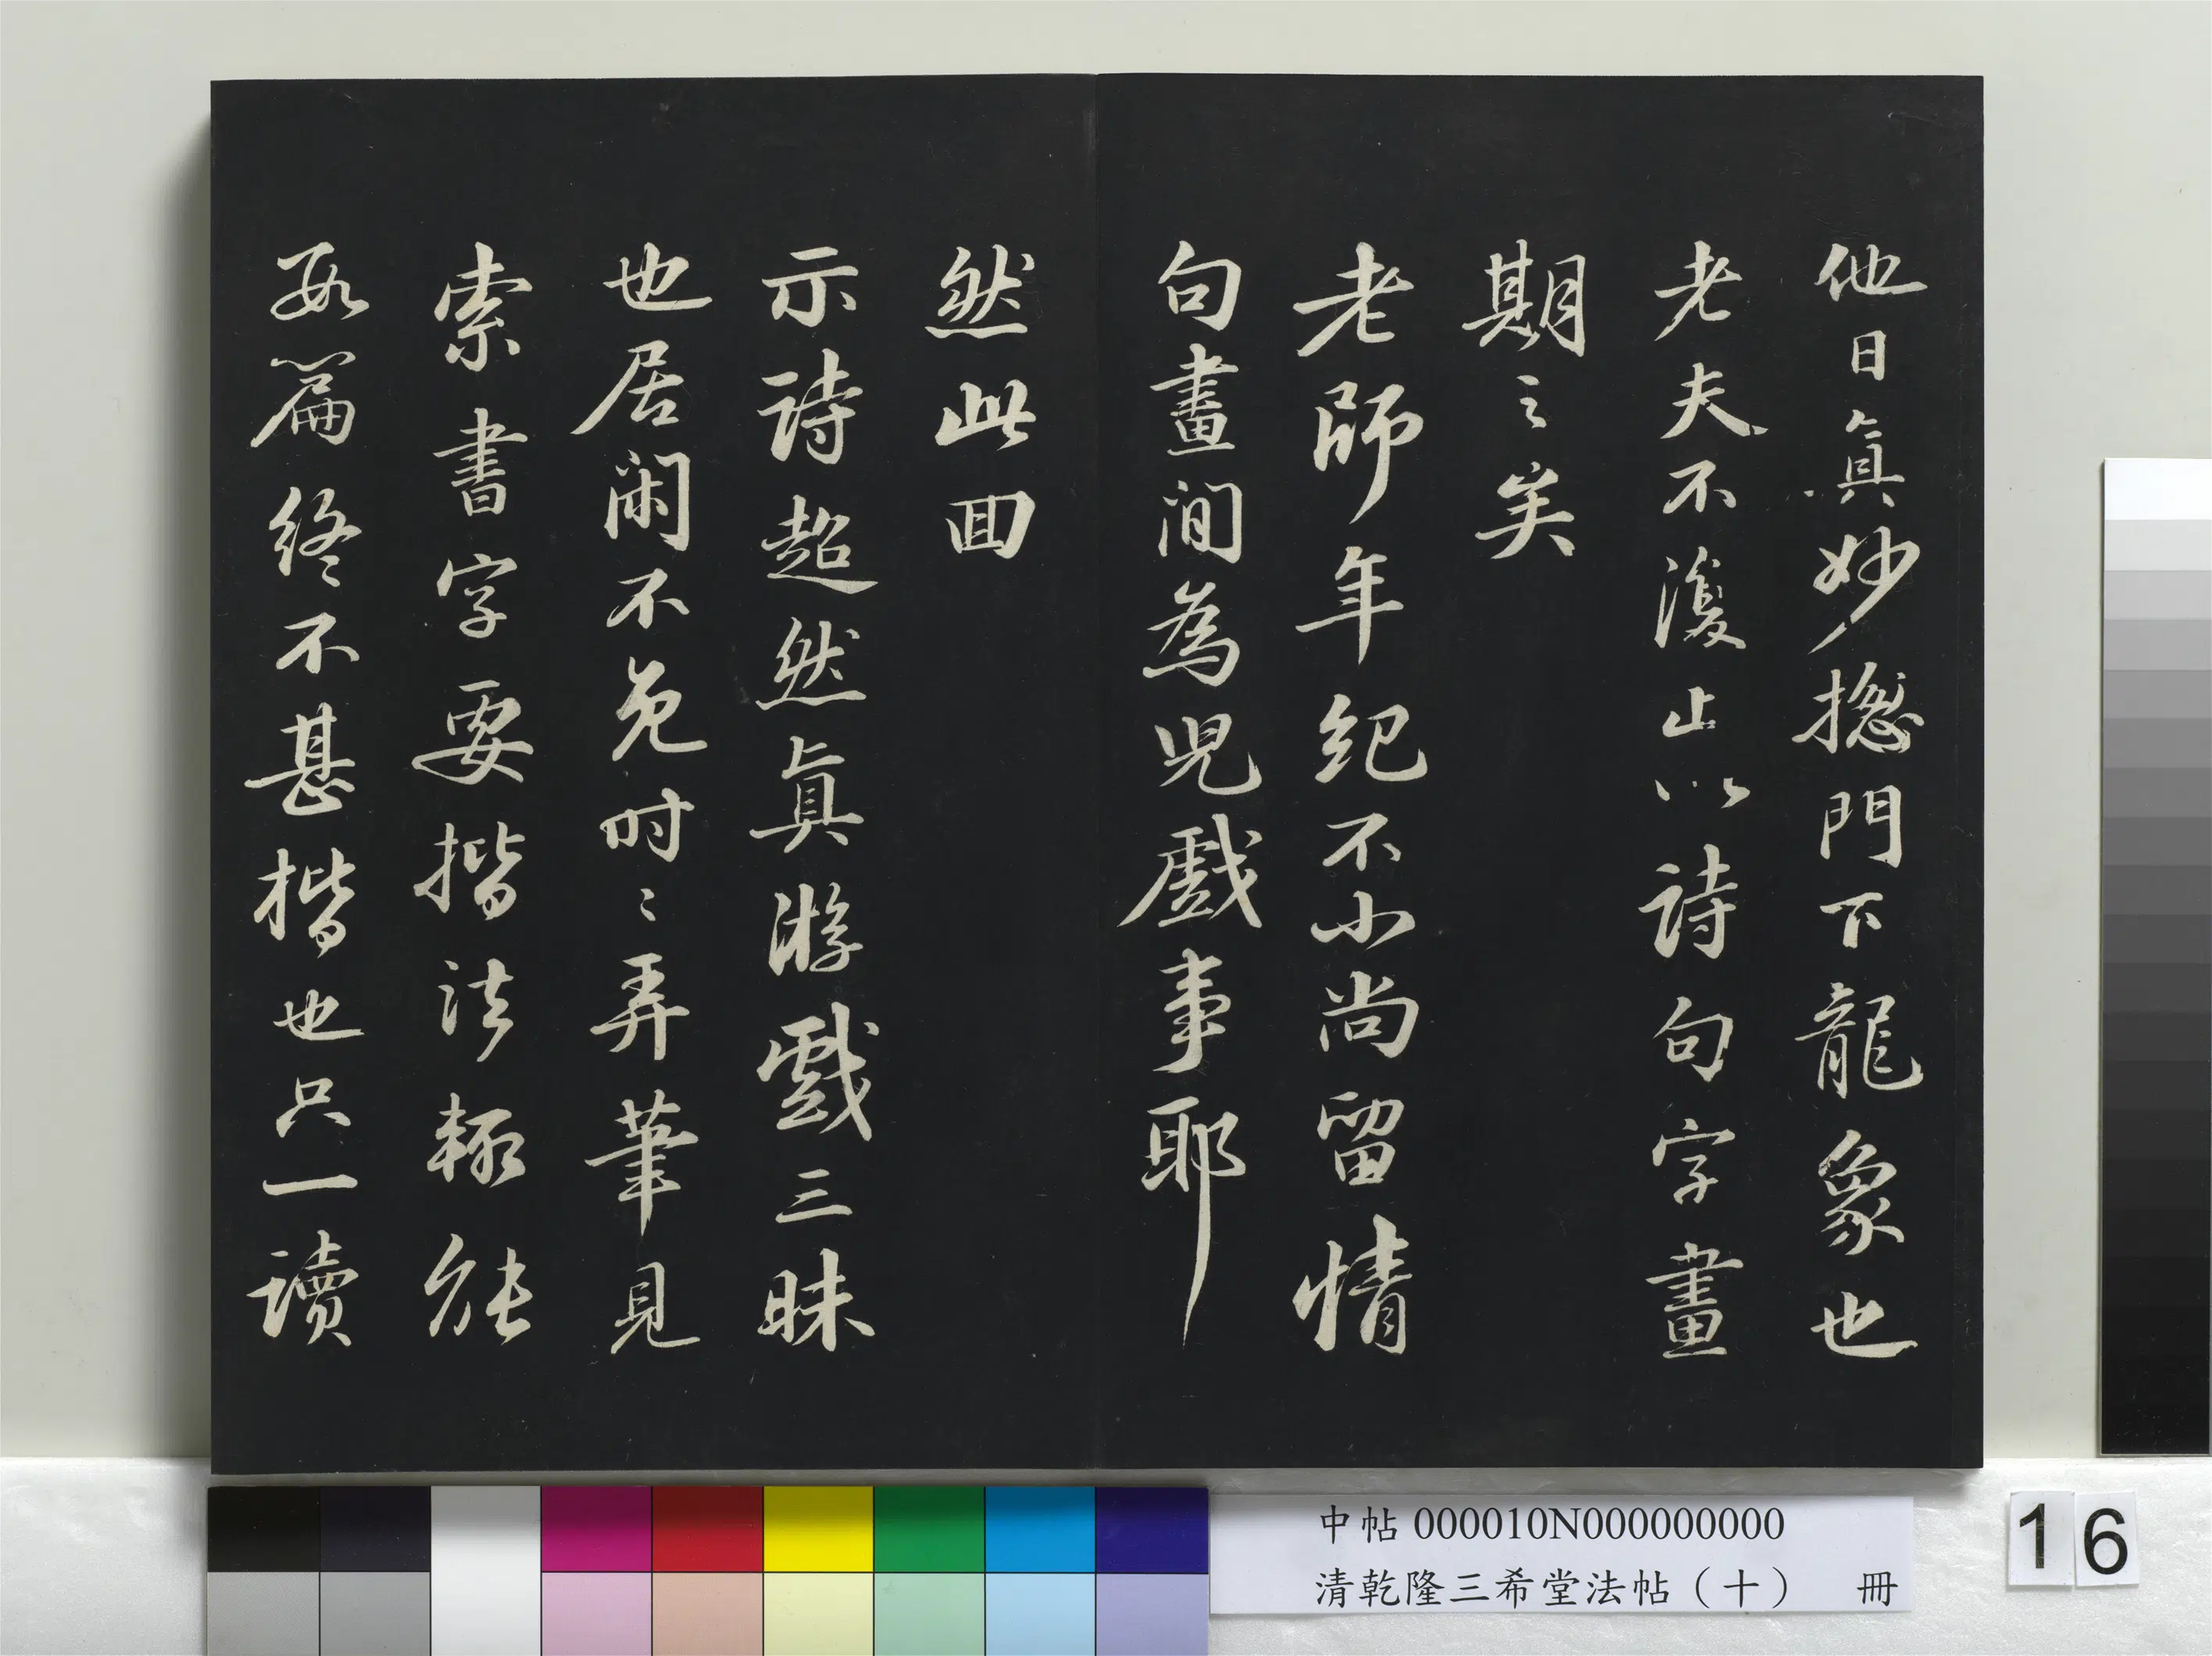 他日真妙揔門下龍象也
老夫不復止以詩句字畫
期之矣
老師年紀不小尚留情
句畫間為兒戲事耶
然此回
示詩超然真游戲三昧
也居閑不免時〻弄筆見
索書字要揩法輒能
數篇終不甚揩也只一讀
中帖 000010N000000000
清乾隆三希堂法帖（十） 冊
16